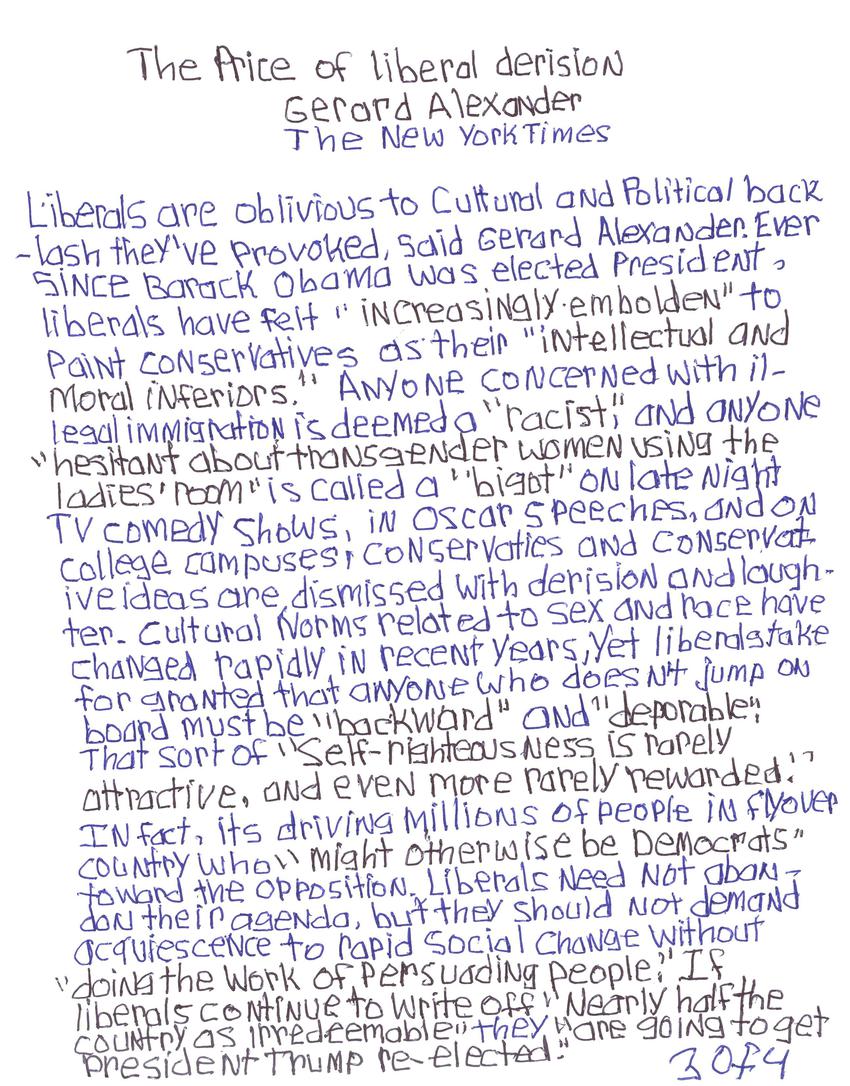 The Price of liberal derision
Gerard Alexander
The New York Times
Liberals are oblivious to Cultural and Political back
-lash they've provoked, said Gerard Alexander. Ever
since Barack Obama was elected President,
liberals have felt "increasingly embolden" to
Paint conservatives as their "intellectual and
Moral inferiors." Anyone concerned with il-
legal immigration is deemed a "racist," and anyone
"hesitant about transgender women using the
ladies' room" is called a "bigot" on late night
TV comedy shows, in Oscar speeches, and on
College campuses, conservaties and conservat-
ive ideas are dismissed with derision and laugh-
ter. Cultural Norms related to sex and race have
changed rapidly in recent years, yet liberals take
for granted that anyone who doesn't jump on
board must be "backward" and "deporable."
That sort of "Self-righteousness is rarely
attractive, and even more rarely rewarded."
IN fact, its driving Millions of people in flyover
country who "might otherwise be Democrats"
toward the opposition. Liberals Need Not aban-
don their agenda, but they should not demand
acquiescence to rapid Social Change without
"doing the Work of Persuading people." If
liberals continue to write off "Nearly half the
country as irredeemable" they "are going to get
President Trump re-elected."
3 of 4